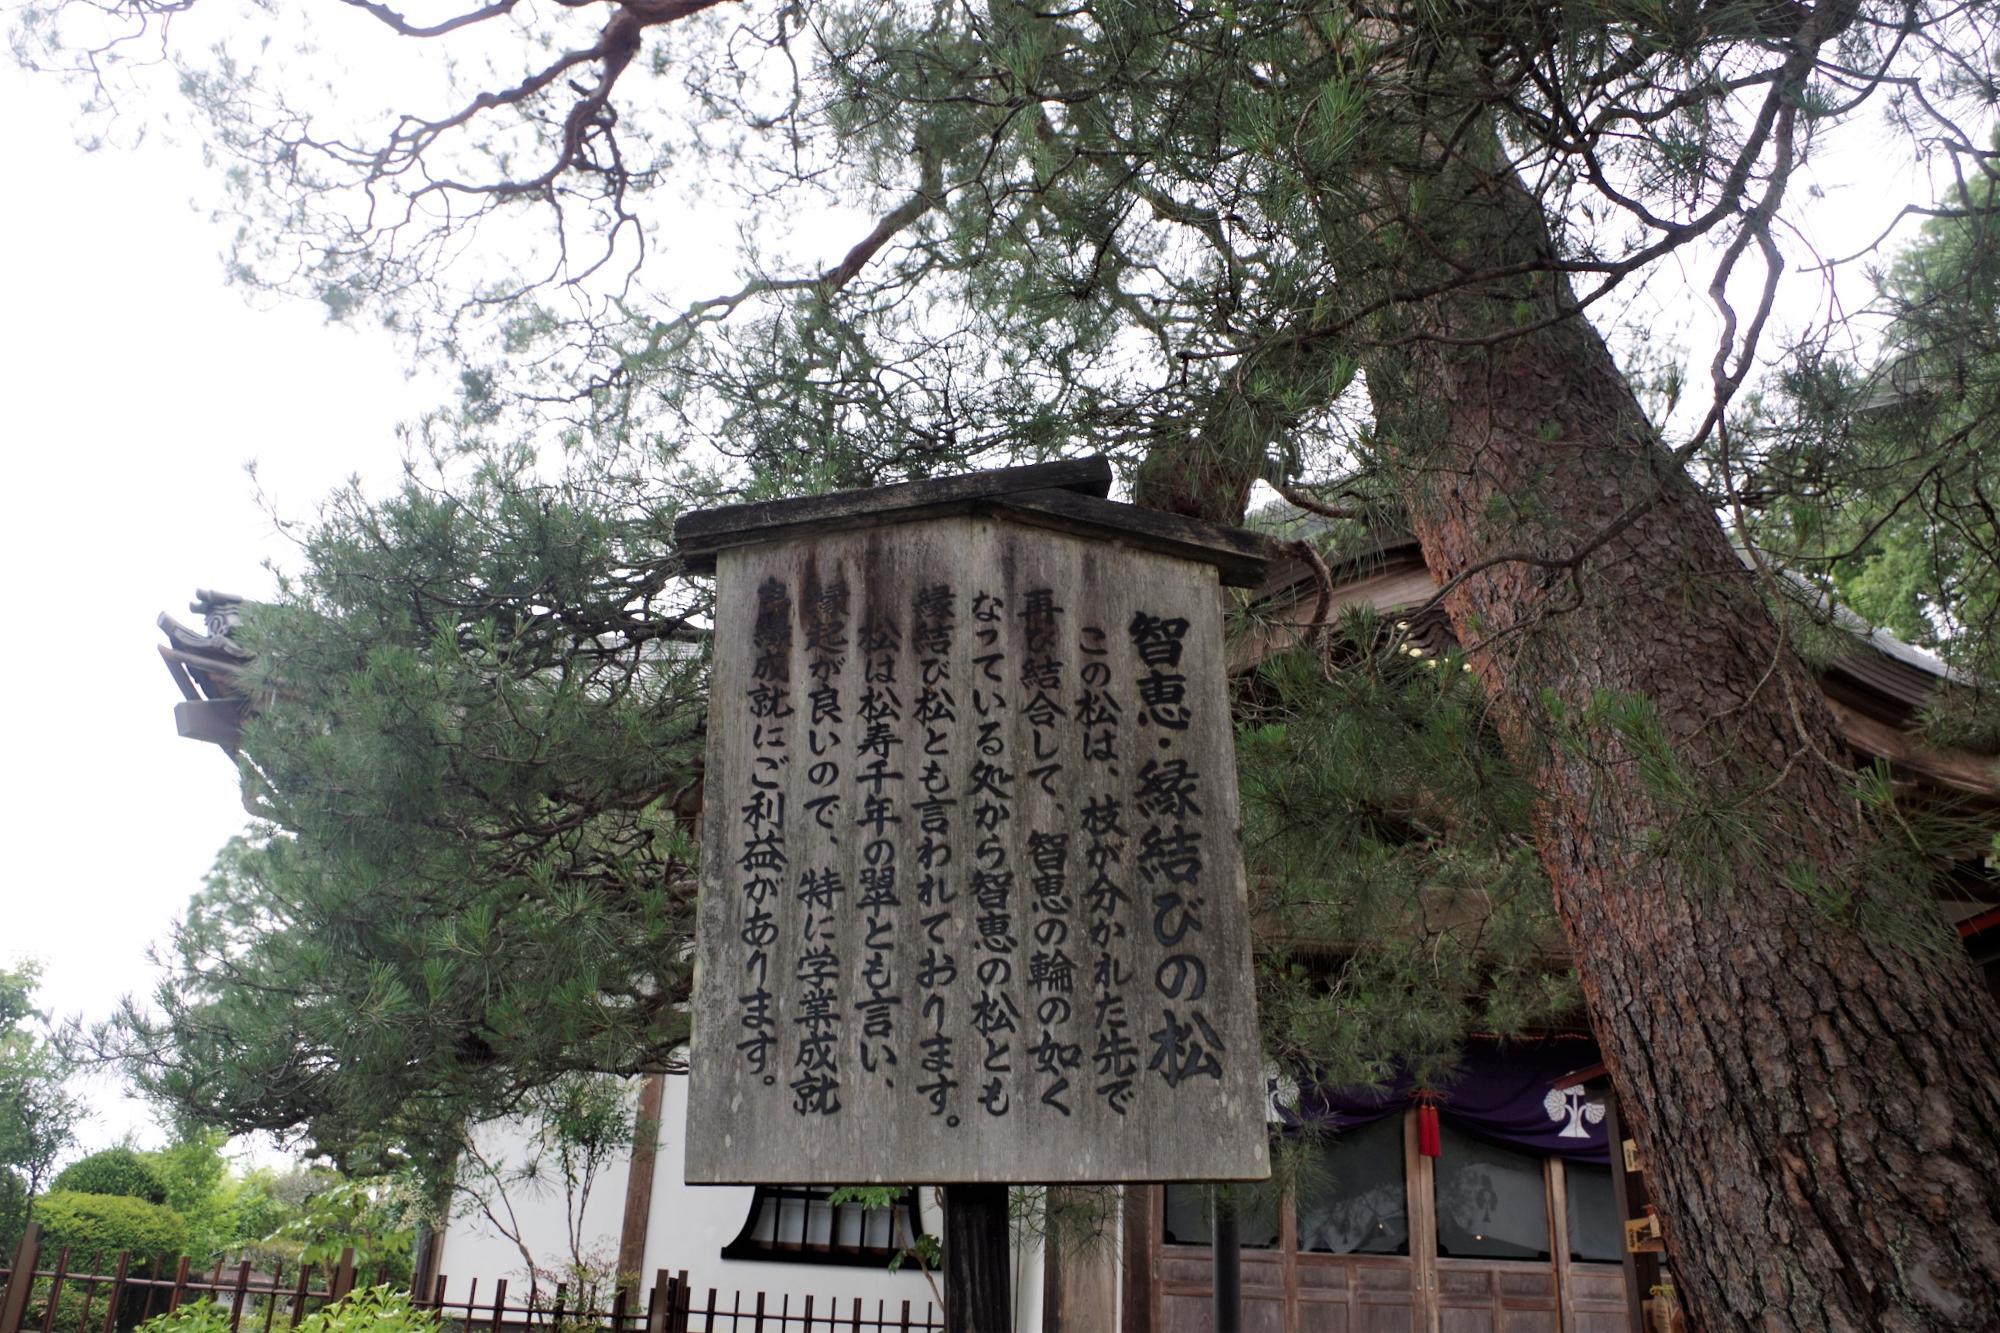 智恵・縁結びの松
この松は、枝が分かれた先で
再び結合して、智恵の輪の如く
なっている処から智恵の松とも
縁結び松とも言われております。
松は松寿千年の翠とも言い、
縁起が良いので、特に学業成就
良縁成就にご利益があります。